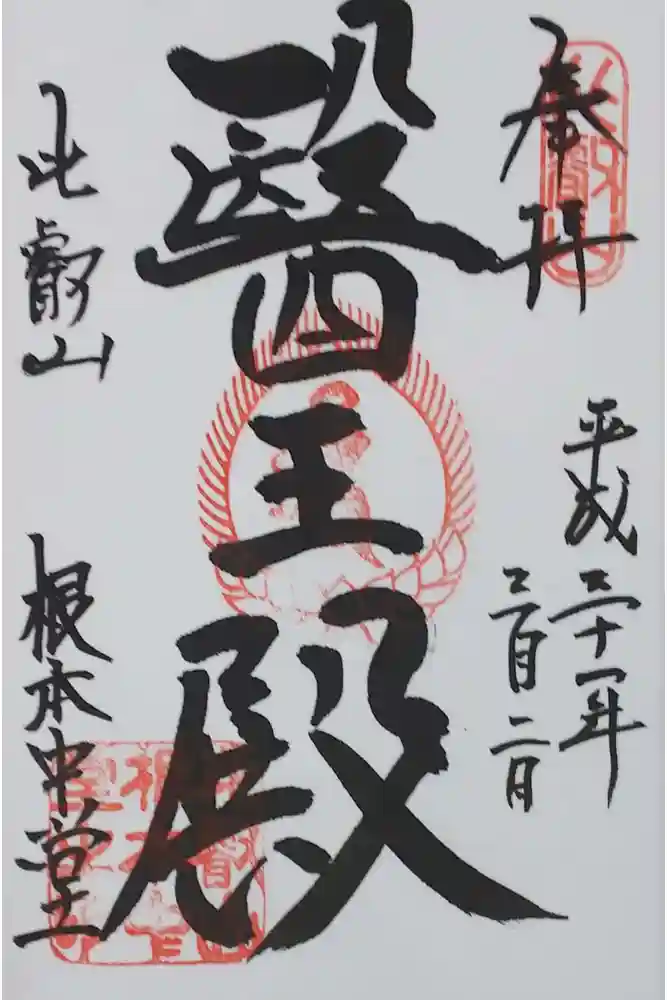 奉拝
平成三十一年
三月二日
醫王殿
比叡山
根本中堂